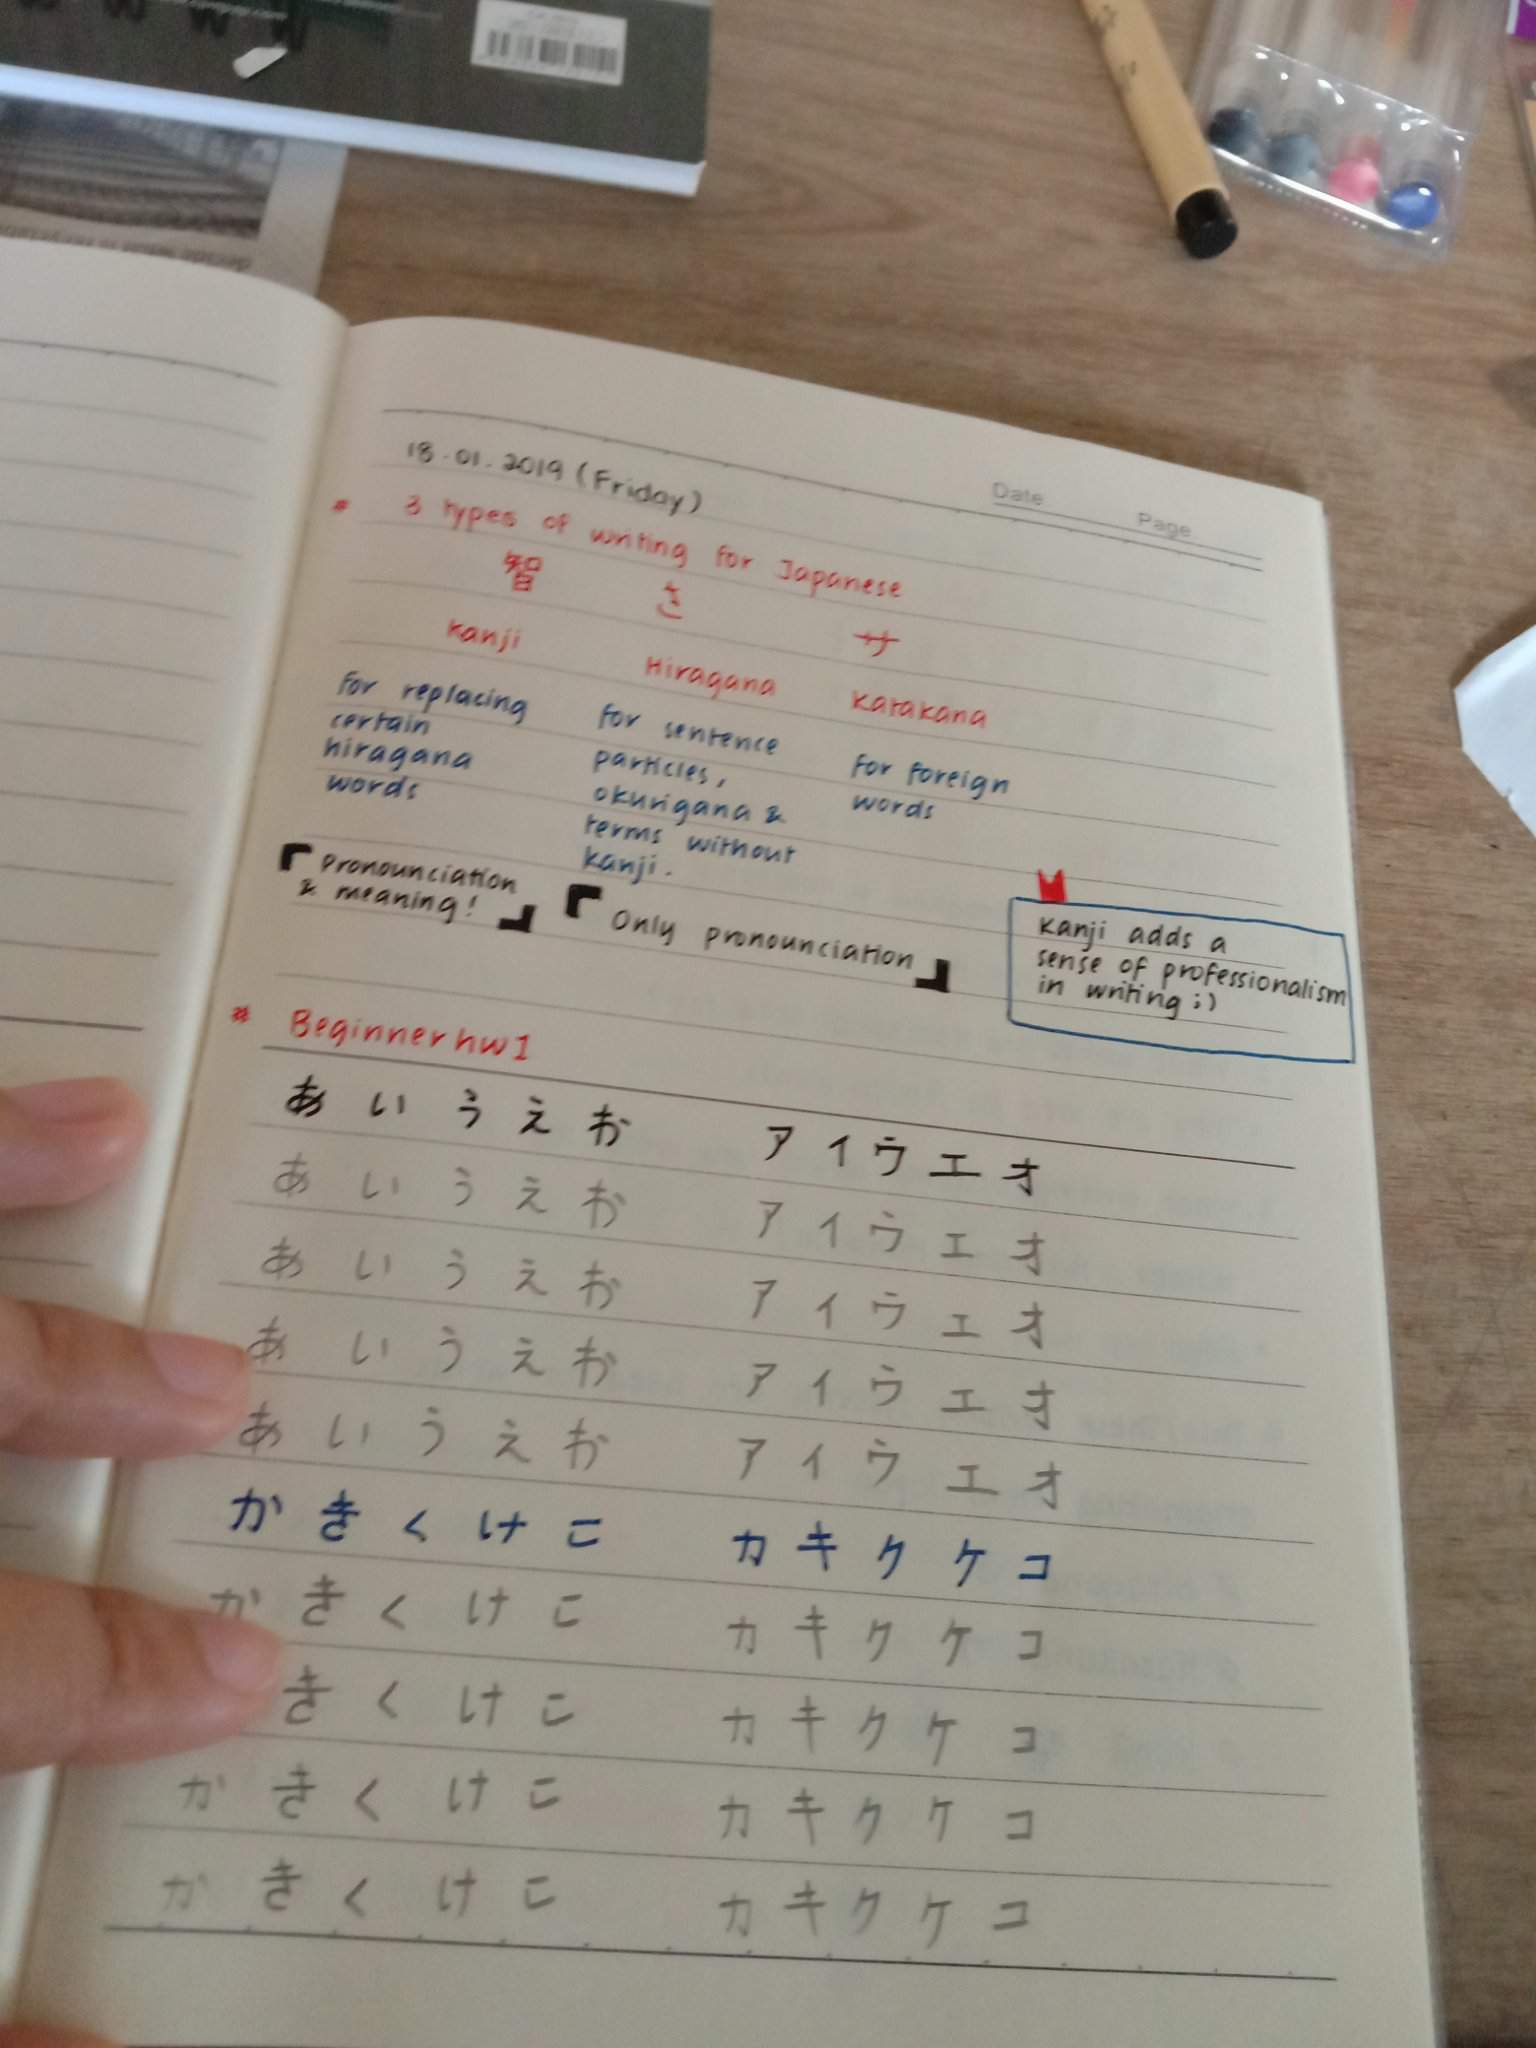 Date
Page
18.01.2019 (Friday)
* 3 types of writing for Japanese
智 さ サ
Kanji Hiragana Katakana
for replacing
certain
hiragana
words
for sentence
particles,
okurigana &
terms without
kanji.
for foreign
words
「 Pronounciation
& meaning! 」
「 Only pronounciation 」
Kanji adds a
sense of professionalism
in writing ;)
* Beginner hw 1
あ い う え お ア イ ウ エ オ
あ い う え お ア イ ウ エ オ
あ い う え お ア イ ウ エ オ
あ い う え お ア イ ウ エ オ
あ い う え お ア イ ウ エ オ
か き く け こ カ キ ク ケ コ
か き く け こ カ キ ク ケ コ
き く け こ カ キ ク ケ コ
か き く け こ カ キ ク ケ コ
か き く け こ カ キ ク ケ コ